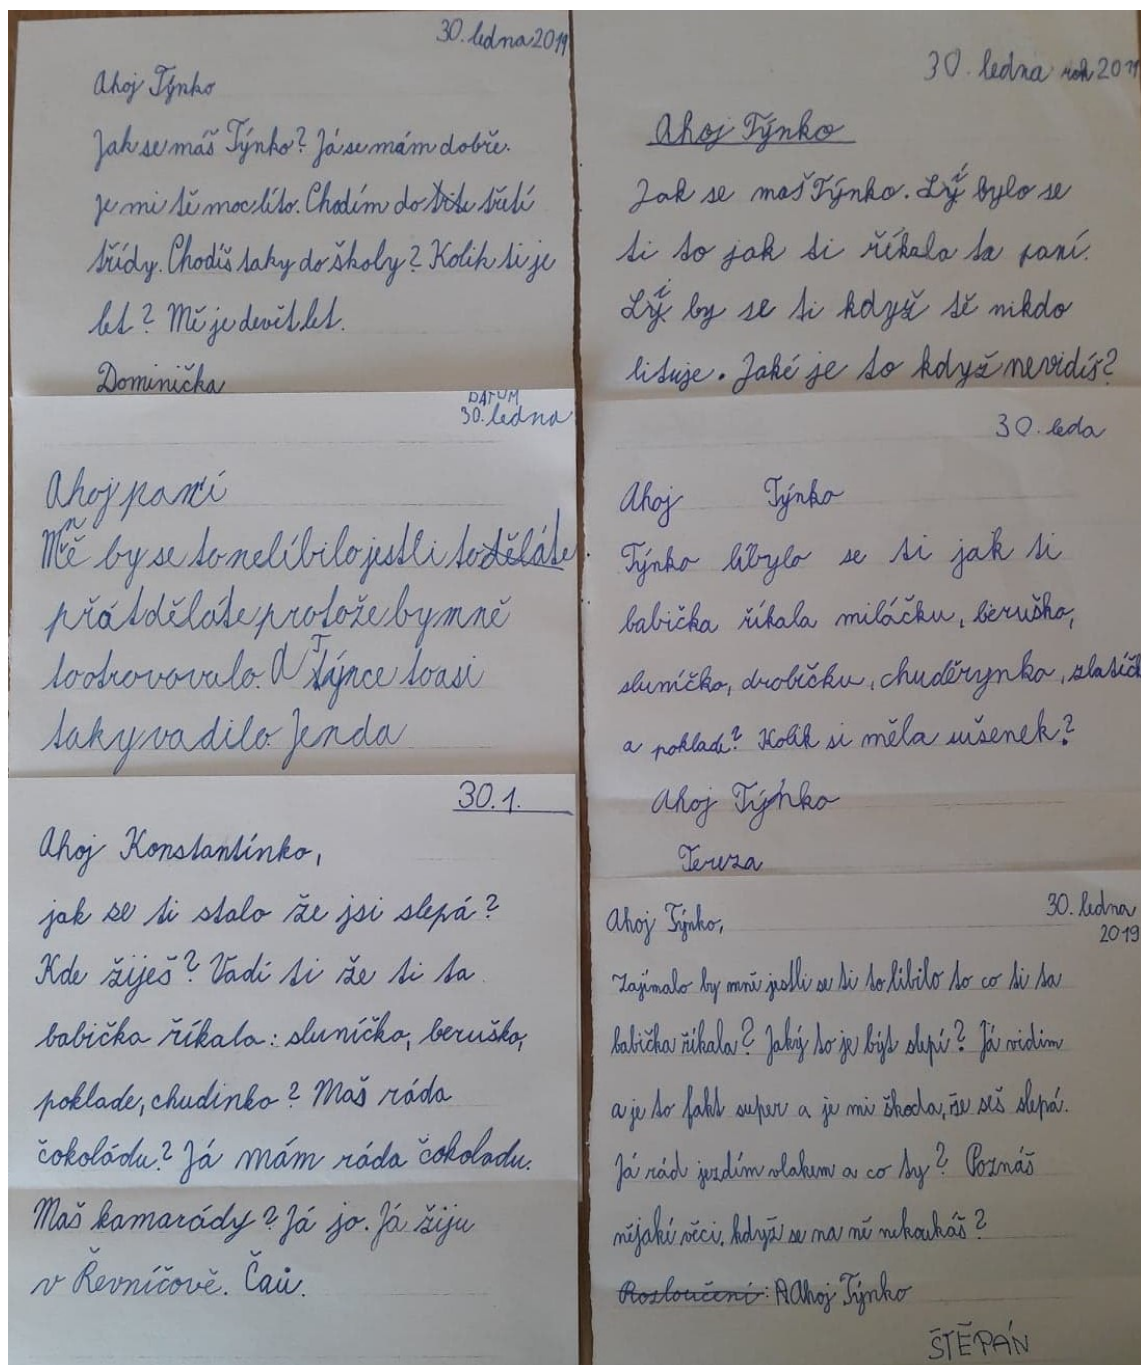 30. ledna 2019
Ahoj Týnko
Jak se máš Týnko? Já se mám dobře.
je mi tě moc líto. Chodím do třetí
třídy. Chodíš taky do školy? Kolik ti je
let? Mě je devět let.
Dominička
DATUM
30. ledna
Ahoj paní
Mně by se to nelíbilo jestli to děláte
přát děláte protože by mně
to otrovovalo. A Týnce to asi
taky vadilo. Jenda
30.1.
Ahoj Konstantínko,
jak se ti stalo že jsi slepá?
Kde žiješ? Vadí ti že ti ta
babička říkala: sluníčko, beruško,
poklade, chudinko? Maš ráda
čokoládu? Já mám ráda čokoladu.
Maš kamarády? Já jo. Já žiju
v Řevníčově. Čaů.
30. ledna rok 2019
Ahoj Týnko
Jak se maš Týnko. Lí bylo se
ti to jak ti říkala ta paní.
Lí by se ti když tě nikdo
lituje. Jaké je to když nevidíš?
30. leda
Ahoj Týnko
Týnko líbylo se ti jak ti
babička říkala miláčku, beruško,
sluníčko, drobíčku, chuděrynko,
a poklade? Kolik si měla sušenek?
Ahoj Týnko
Tereza
30. ledna
2019
Ahoj Týnko,
Zajímalo by mně jestli se ti to líbilo to co ti ta
babička říkala? Jaký to je být slepí? Já vidim
a je to fakt super a je mi škoda, že seš slepá.
Já rád jezdím vlakem a co ty? Poznáš
nějakí věci, když se na ně nekoukáš?
Rozloučení: Ahoj Týnko
ŠTĚPÁN